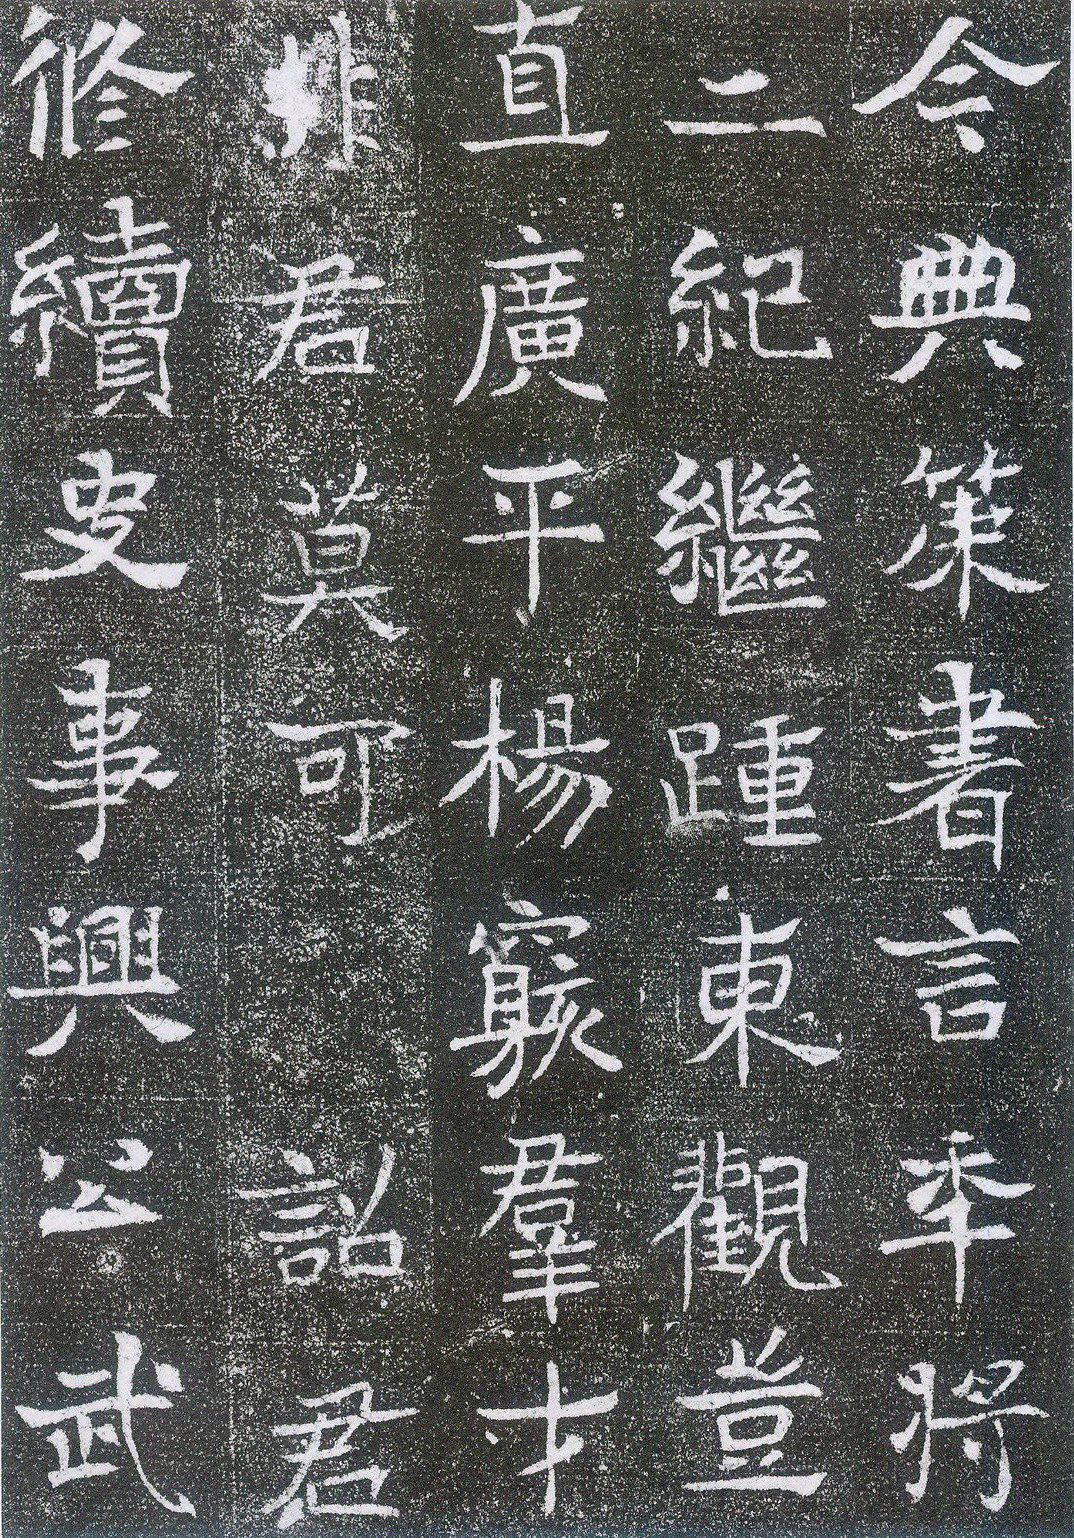 令典策書言年将
二紀繼踵東觀豈
直廣平楊羣才
非君莫可詔君
修續史事興公武